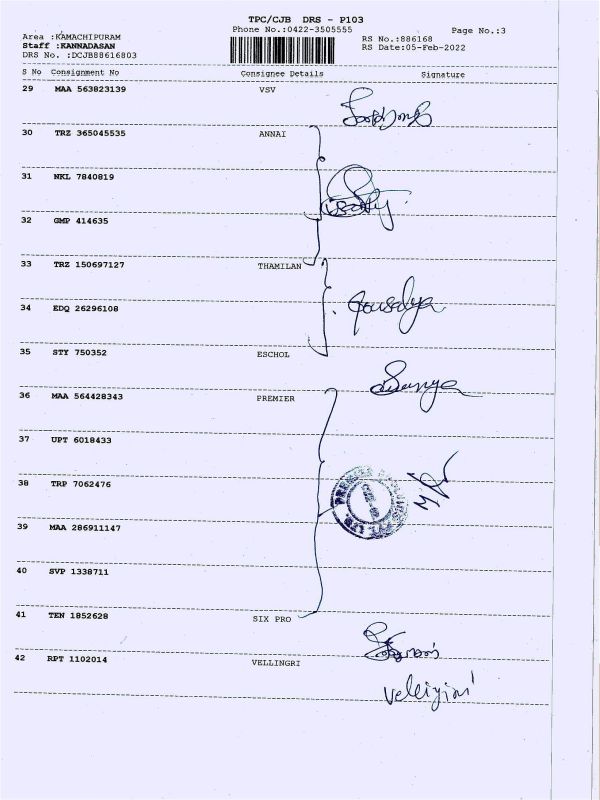 TPC/CJB DRS - P103
Phone No.:0422-3505555 Page No.:3
Area :KAMACHIPURAM RS No.:886168
Staff :KANNADASAN RS Date:05-Feb-2022
DRS No. :DCJB88616803
S No Consignment No Consignee Details Signature
29 MAA 563823139 VSV
30 TRZ 365045535 ANNAI
31 NKL 7840819
32 GMP 414635
33 TRZ 150697127 THAMILAN
34 EDQ 26296108 gousalya
35 STY 750352 ESCHOL
36 MAA 564428343 PREMIER
37 UPT 6018433
38 TRP 7062476
39 MAA 286911147
40 SVP 1338711
41 TEN 1852628 SIX PRO
42 RPT 1102014 VELLINGRI